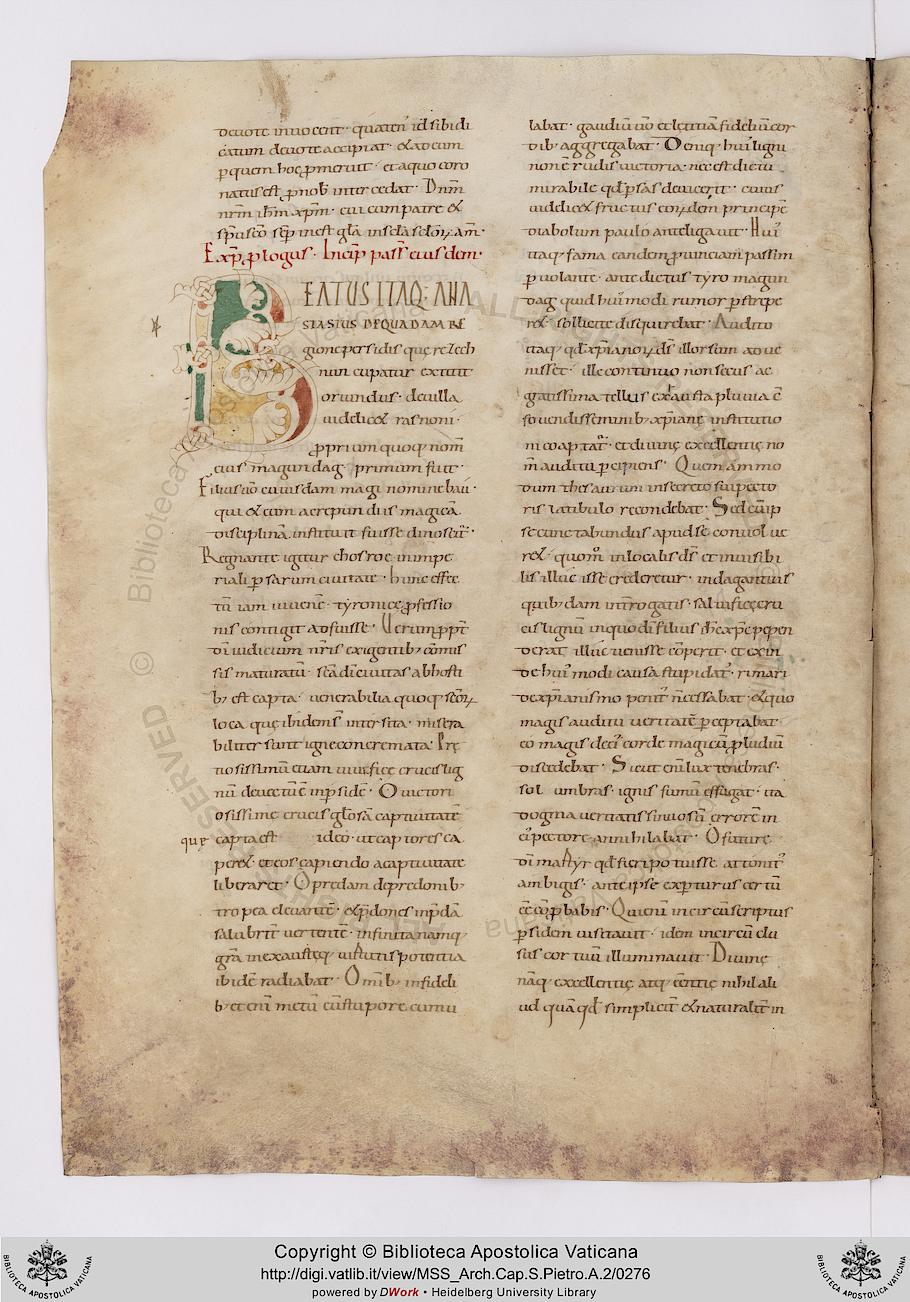 deuote inuocent· quaten' id sibi di
catum deuote accipiat· & adeum
p quem hoc pmeruit· et a quo coro
natus est p nob intercedat· Dnm
nrm ihm xpm· cui cum patre &
spu sco sep inest gla in scla sclor; am·
Exp plogus· Incip pass eiusdem·
BEATUS ITAQ· ANA
STASIUS DE QUADAM RE
gione persidis que razech
nuncupatur extitit
oriundus· de uilla
uidelic& rasnoni·
pprium quoq nom
eius magundag· primum fuit·
Filius uo cuiusdam magi nomine bau·
qui & eum a crepundiis magica
disciplina instituit fuisse dinoscit'·
Regnante igitur chosroe in impe
riali psarum ciuitate· hunc effec
tu iam iuuene· tyronice pfessio
nis contigit adfuisse· Uerum ppt
di iudicium nris exigentib; comis
sis maturatu· sca di ciuitas ab hosti
b; est capta· uenerabilia quoq scor;
loca que ibidem sint sita· misera
biliter sunt igne concremata· Pre
tiosissimu etiam uiuifice crucis lig
nu deuectu e in pside· O uictori
osissime crucis gloosa captiuitate
que capta est ideo· ut captores ca
per&· et eos capiendo a captiuitate
liberaret· O predam depredonib;
tropea eleuante· & pdones in pda
salubrit uertente· infinita namq
gra inexausteq uirtutis potentia
ibide radiabat· Omib; infideli
b; et eni metu cu stupore cumu
labat· gaudiu uo et letitia fideliu cor
dib; aggregabat· Deniq hui' ligni
non e rudis uictoria· nec est dictu
mirabile qd psas deuicerit· cuius
uidelic& fructus eor;dem principe
diabolum paulo ante ligauit· Hui'
itaq fama eandem puinciam passim
puolante· antedictus tyro magun
dag· quid hui'modi rumor pstrepe
r&· sollicite disquirebat· Audito
itaq qd xpianor; ds illorsum adue
nisset· ille continuo non secus ac
gratissima tellus exhausta pluuia e
fouendis seminib; xpiane institutio
ni coaptat'· et diuine excellentie no
m auditu pcipiens· Quem ammo
dum thesaurum in secreto sui pecto
ris latibulo recondebat· Sed cu ip
se cunctabundus apud se conuolue
r&· quom inlocalis ds et inuisibi
lis illuc isse crederetur· indagantius
quib;dam introgatis· saluifice cru
cis lignu in quo di filius ihc xpc pepen
derat· illuc uenisse copperit· et exin
de hui'modi causa stupidat'· rimari
de xpianismo penit' n cessabat· & quo
magis auditu ueritate pceptabat
eo magis deci corde magicu pludiu
discedebat· Sicut eni lux tenebras·
sol umbras· ignis fumu effugat· ita
dogma ueritatis sinuosu errore in
ei' pectore annihilabat· O future
di martyr qd fieri potuisse attonit'
ambigis· ante ipse expturus certu
ee cop;babis· Qui eni incircuscriptus
psidem uisitauit· idem incircucla
sus cor tuu illuminauit· Diuine
naq excellentie atq centie nihil ali
ud qua qd simplicit & naturalit in
Copyright © Biblioteca Apostolica Vaticana
http://digi.vatlib.it/view/MSS_Arch.Cap.S.Pietro.A.2/0276
powered by DWork • Heidelberg University Library